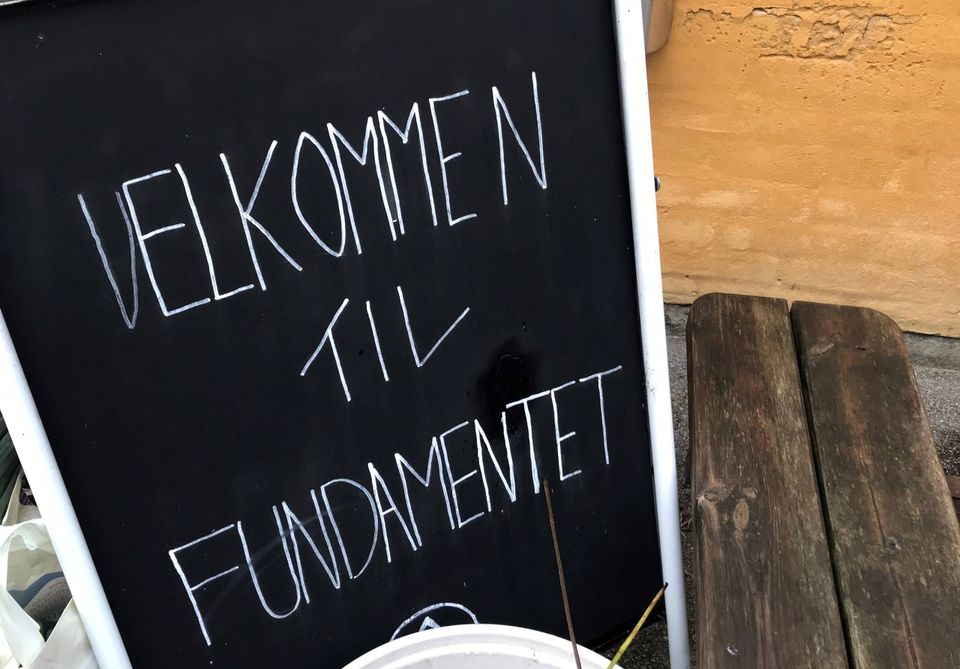 VELKOMMEN
TIL
FUNDAMENTET